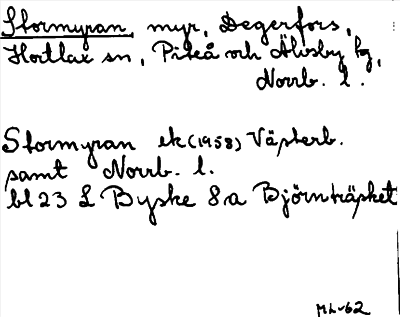 Stormyran, myr, Degerfors,
Hortlax sn, Piteå och Älvsby tg,
Norrb. l.
Stormyran ek (1958) Västerb.
samt Norrb. l.
bl 23 L Byske 8a Björnträsket
ML-62